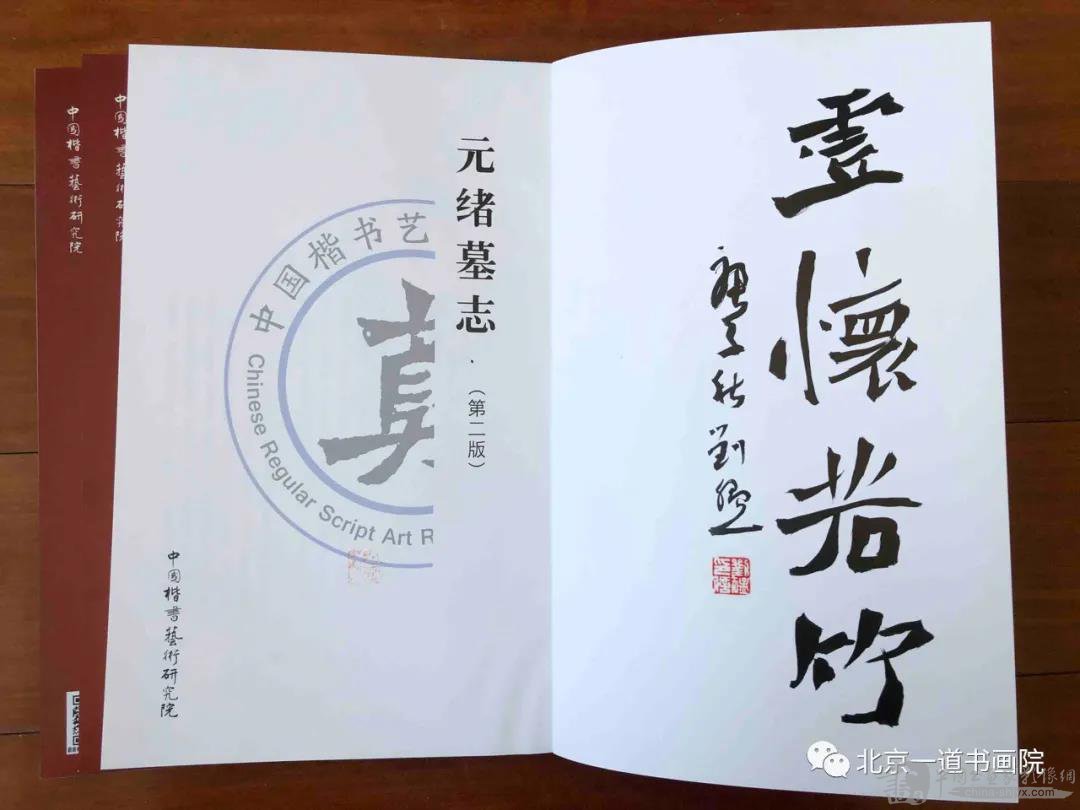 中国楷書藝術研究院
中国楷書藝術研究院
元绪墓志
·
（第二版）
中国楷书艺
真
Chinese Regular Script Art R
中国楷書藝術研究院
虚懷若竹
庚子秋劉
北京一道书画院
china-shjyx.com